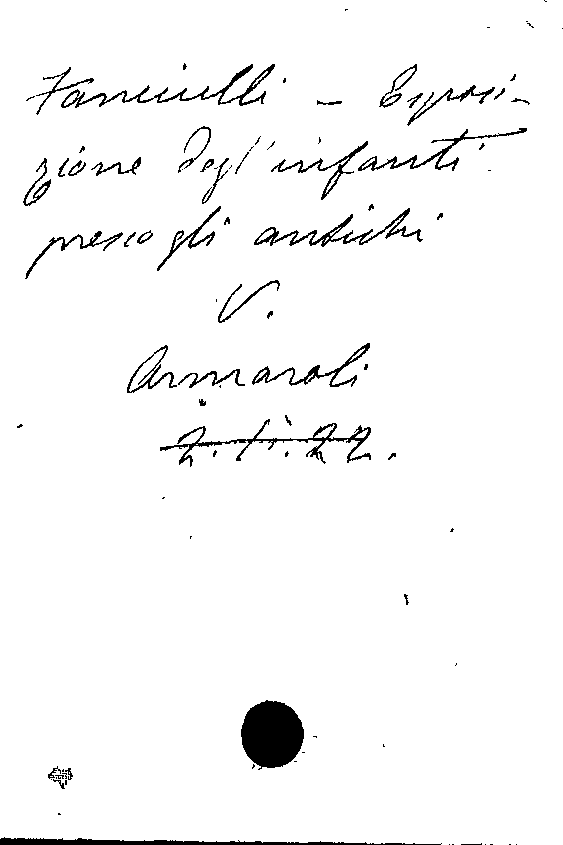 Fanciulli - Esposi-
zione degl'infanti
presso gli antichi
V.
Armaroli
2. 11. 22.